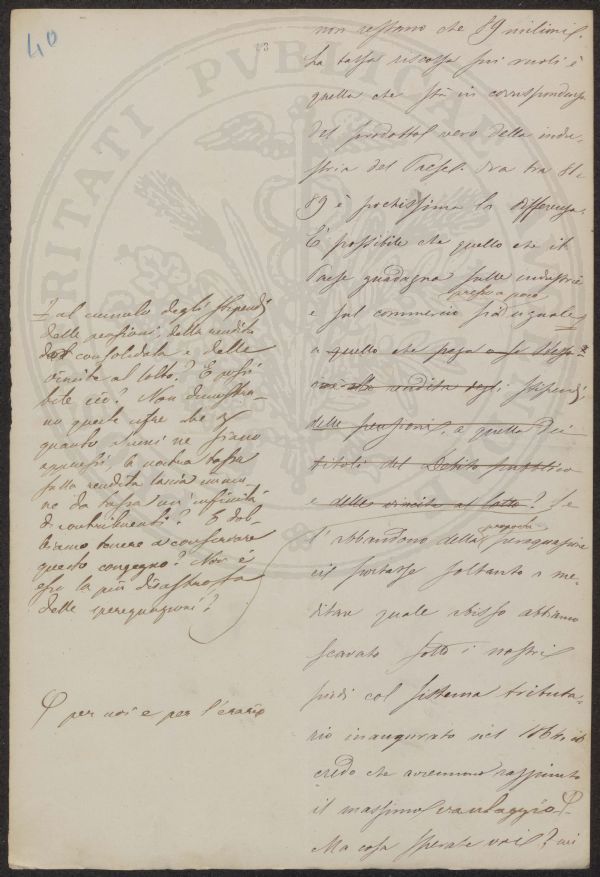 40
non restano che 89 milioni.
La tassa riscossa sui ruoli è
quella che stà in corrispondenza
del prodotto vero della indu-
stria del Paese. Ora tra 81-
89 è pochissima la differenza.
È possibile che quello che il
Paese guadagna sulle industrie
presso a poco
e sul commercio sia uguale
a quello che paga
alla rendita degli stipendi,
delle pensioni, a quella dei
titoli del Debito pubblico
e delle vincite al lotto? Se
l'abbandono della proposta perequazione
ci portasse soltanto a me-
ditare quale abisso abbiamo
scavato sotto i nostri
piedi col sistema tributa-
rio inaugurato nel 1864 io
credo che avremmo raggiunto
il massimo vantaggio
Ma cosa sperate voi? mi
al cumulo degli stipendi
delle pensioni, della rendita
del consolidato e delle
vincite al lotto? È possi-
bile ciò? Non dimostra-
no queste cifre che per
quanto alcuni ne siano
oppressi, la nostra tassa
sulla rendita lascia immu-
ne da tassa un'infinità
di contribuenti? E dob-
biamo tenere a conservare
questo congegno? Non è
esso la più disastrosa
delle sperequazioni?
per noi e per l'erario
PUBLICAE